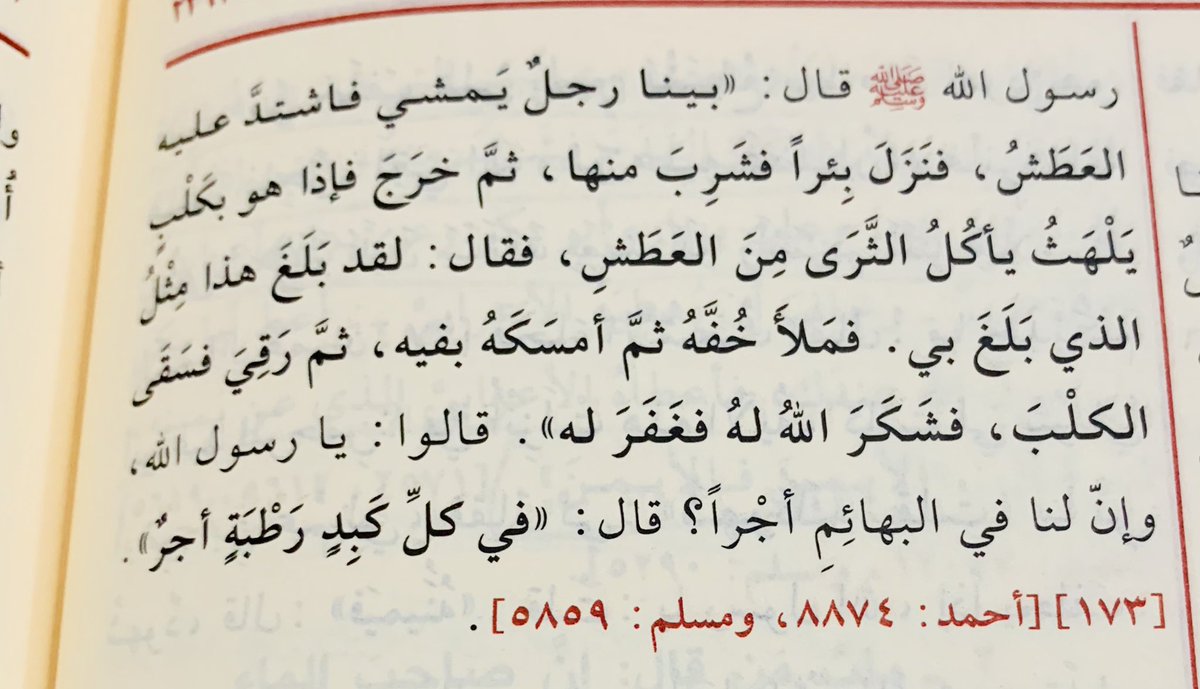 رسول الله ﷺ قال: «بينا رجلٌ يَمشي فاشتدَّ عليه
العَطَشُ، فنَزَلَ بِئراً فشَرِبَ منها، ثمَّ خرَجَ فإذا هو بكَلْبٍ
يَلْهَثُ يأكُلُ الثَّرَى مِنَ العَطَشِ، فقال: لقد بَلَغَ هذا مِثْلُ
الذي بَلَغَ بي. فمَلأَ خُفَّهُ ثمَّ أمسَكَهُ بفيه، ثمَّ رَقِيَ فسَقَى
الكلْبَ، فشَكَرَ اللهُ لهُ فغَفَرَ له». قالوا: يا رسول الله،
وإنّ لنا في البهائِمِ أجْراً؟ قال: «في كلِّ كَبِدٍ رَطْبَةٍ أجرٌ».
[١٧٣] [أحمد: ٨٨٧٤، ومسلم: ٥٨٥٩].